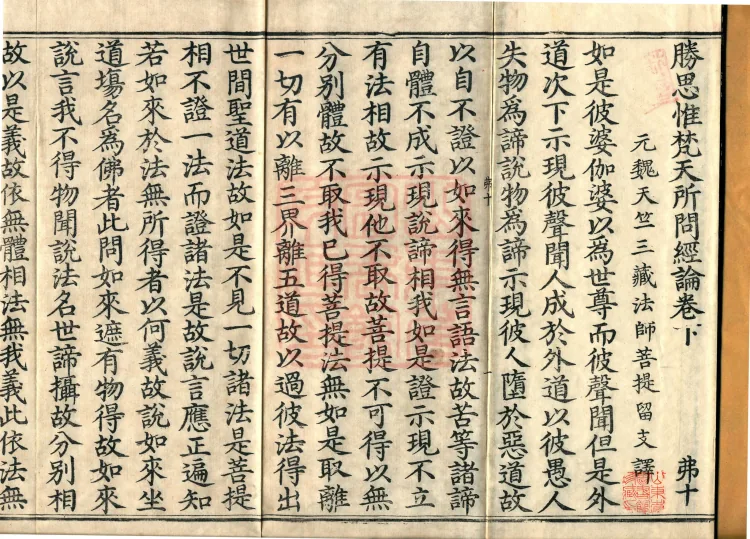 勝思惟梵天所問經論卷下 弗十
元魏天竺三藏法師菩提留支 譯
如是彼婆伽婆以為世尊而彼聲聞但是外
道次下示現彼聲聞人成於外道以彼愚人
失物為諦說物為諦示現彼人墮於惡道故
弗十
以自不證以如來得無言語法故苦等諸諦
自體不成示現說諦相我如是證示現不立
有法相故示現他不取故菩提不可得以無
分別體故不取我已得菩提法無如是取離
一切有以離三界離五道故以過彼法得出
世間聖道法故如是不見一切諸法是菩提
相不證一法而證諸法是故說言應正遍知
若如來於法無所得者以何義故說如來坐
道場名為佛者此問如來遮有物得故如來
說言我不得物聞說法名世諦攝故分別相
故以是義故依無體相法無我義此依法無